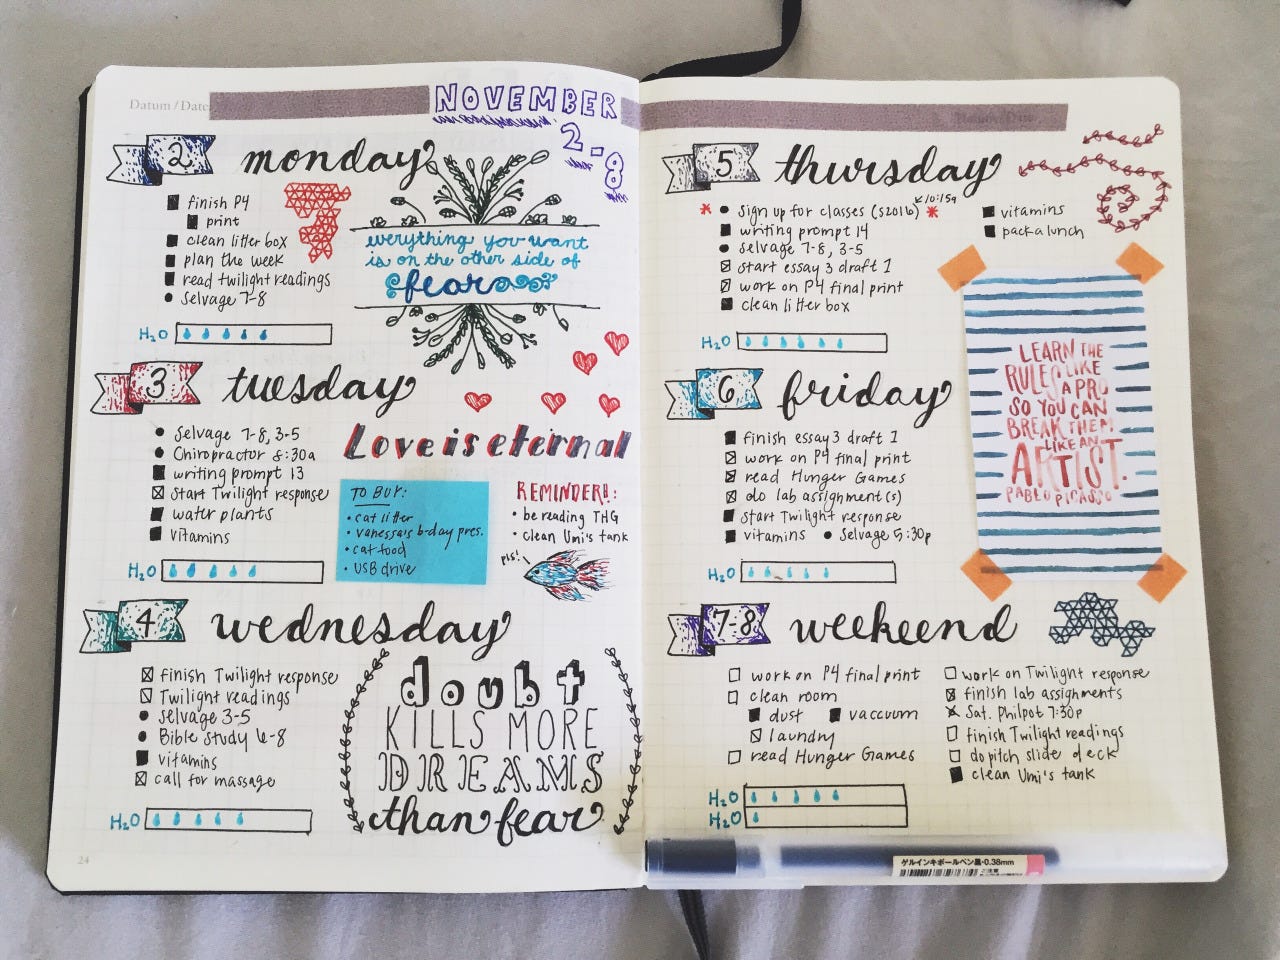 Datum / Date:
NOVEMBER
2-8
2 monday
finish P4
print
clean litter box
plan the week
read twilight readings
Selvage 7-8
H2O
everything you want
is on the other side of
fear
3 tuesday
Selvage 7-8, 3-5
Chiropractor 8:30a
writing prompt 13
start Twilight response
water plants
vitamins
H2O
Love is eternal
TO BUY:
• cat litter
• vanessa's b-day pres.
• cat food
• USB drive
REMINDER!!:
• be reading THG
• clean Umi's tank
pls!
4 wednesday
finish Twilight response
Twilight readings
Selvage 3-5
Bible Study 6-8
vitamins
call for massage
H2O
doubt
KILLS MORE
DREAMS
than fear
24
Datum / Date:
5 thursday
* Sign up for classes (S2016) * 10:15a
writing prompt 14
selvage 7-8, 3-5
start essay 3 draft 1
work on P4 final print
clean litter box
vitamins
pack a lunch
H2O
6 friday
finish essay 3 draft 1
work on P4 final print
read Hunger Games
do lab assignment(s)
start Twilight response
vitamins • Selvage 5:30p
H2O
LEARN THE
RULES LIKE
A PRO
SO YOU CAN
BREAK THEM
LIKE AN
ARTIST.
PABLO PICASSO
7-8 weekend
work on P4 final print
clean room
dust vaccuum
laundry
read Hunger Games
work on Twilight response
finish lab assignments
Sat. Philpot 7:30p
finish Twilight readings
do pitch slide deck
clean Umi's tank
H2O
H2O
ゲルインキボールペン黒・0.38mm